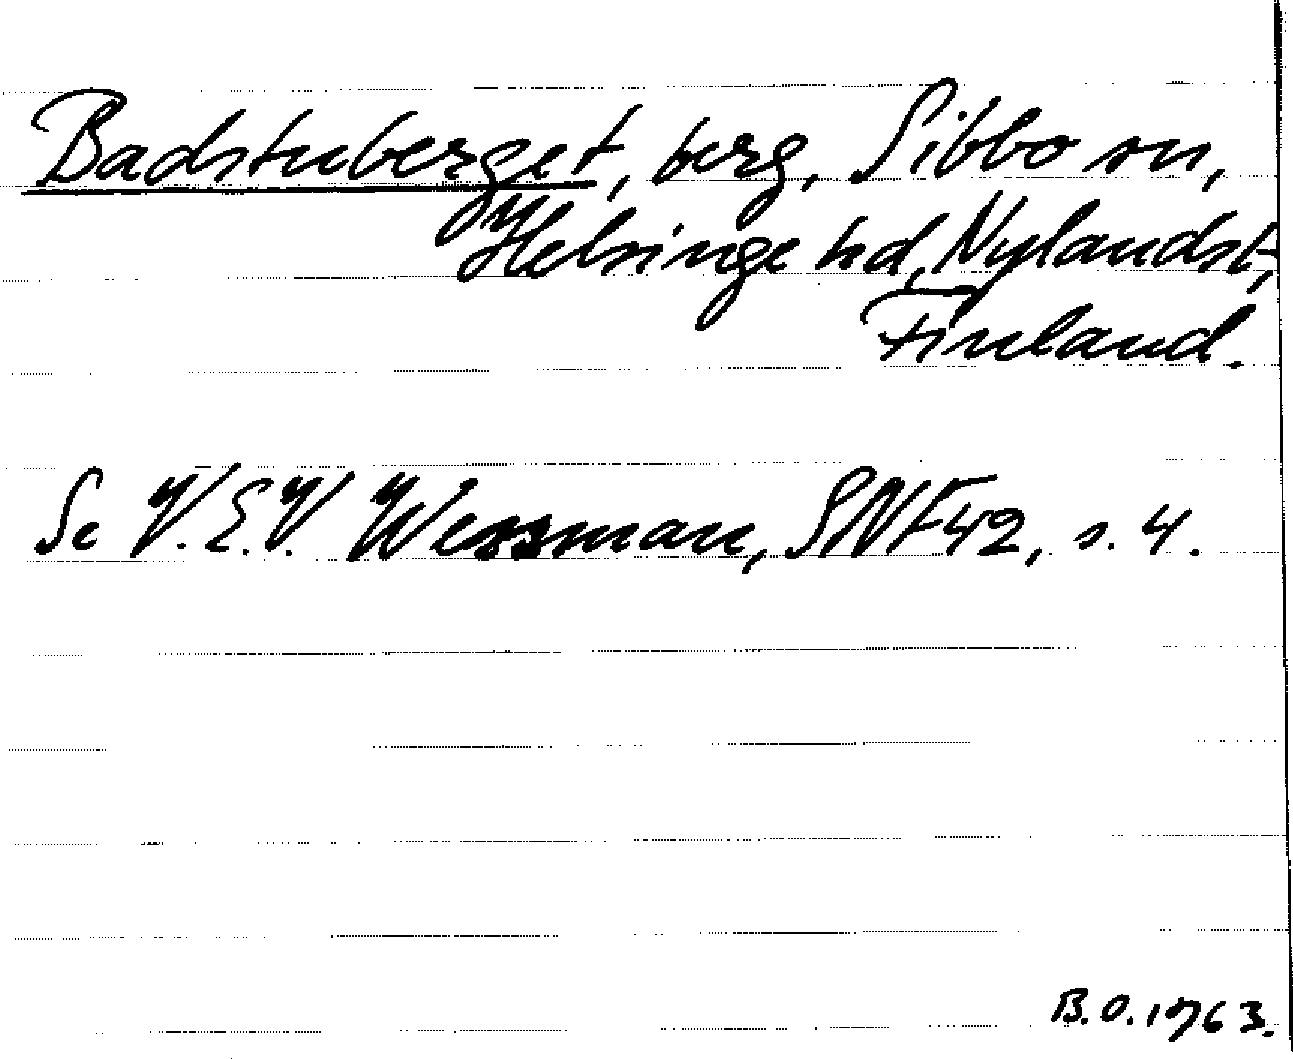 Badstuberget, berg, Sibbo sn,
Helsinge hd, Nylands l,
Finland.
Se V.E.V. Wessman, SNF 42, s. 4.
B.O. 1963.